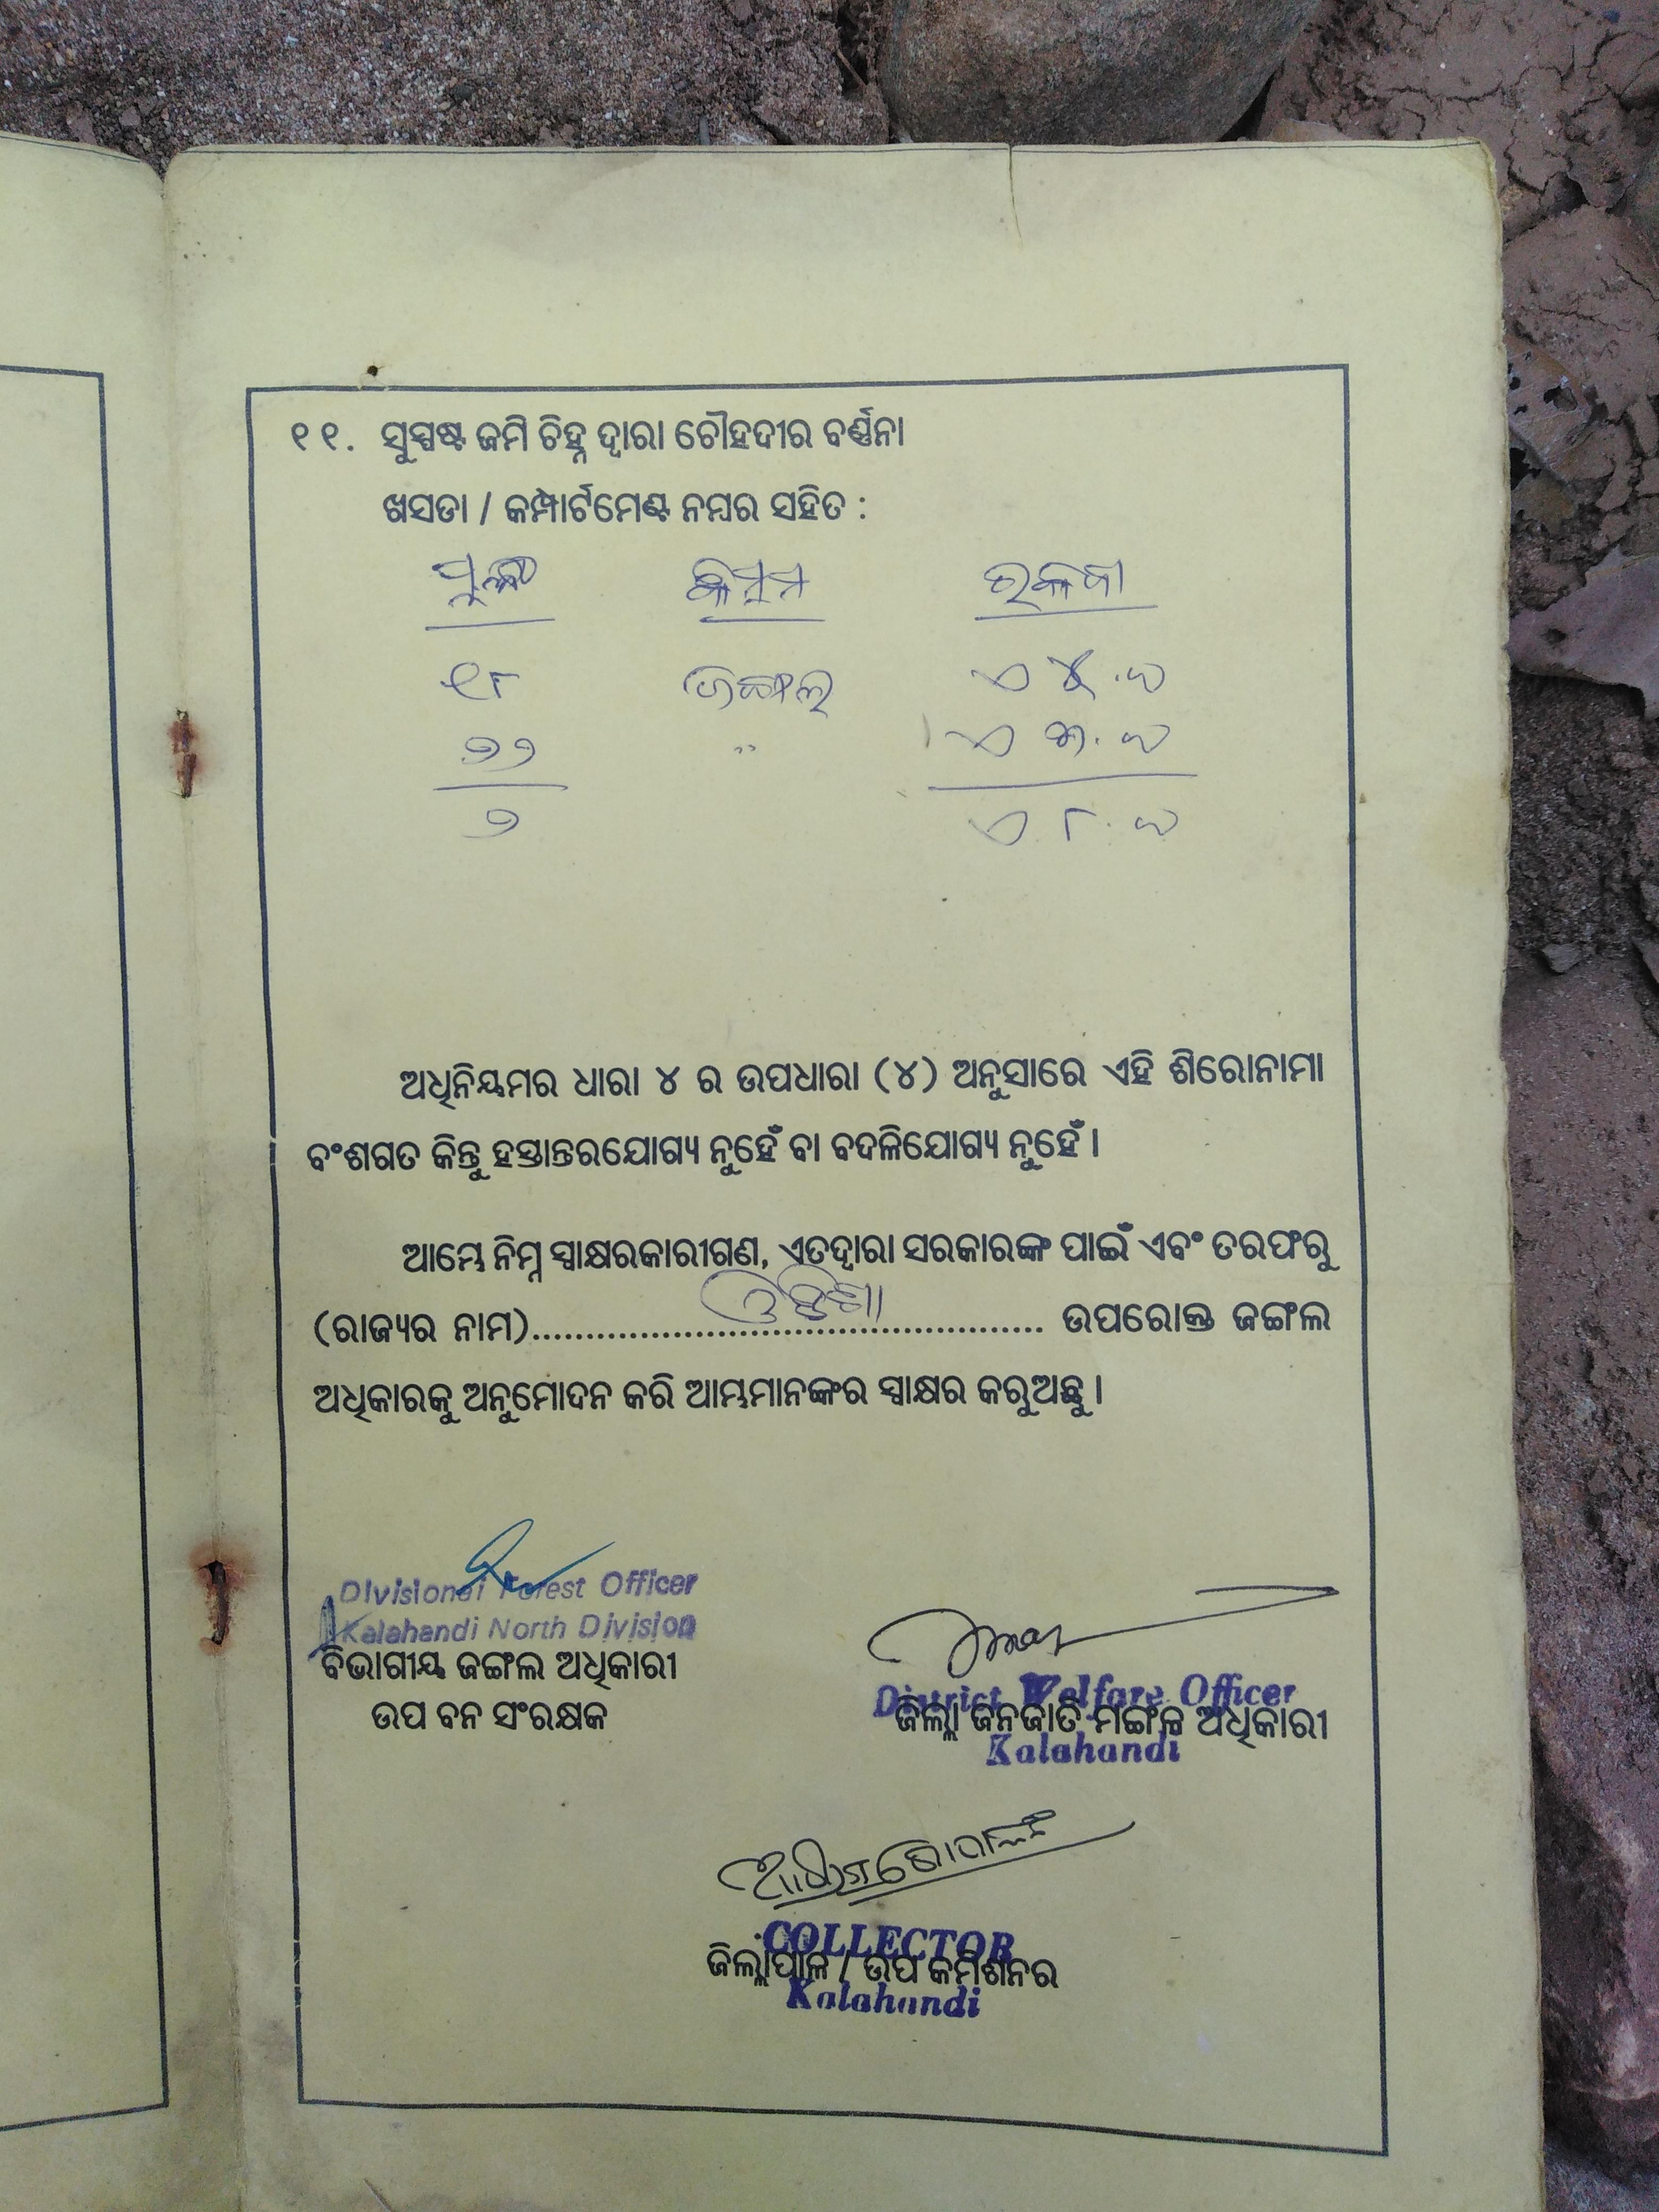 ୧୧. ସୁସ୍ପଷ୍ଟ ଜମି ଚିହ୍ନ ଦ୍ୱାରା ଚୌହଦୀର ବର୍ଣ୍ଣନା
ଖସଡା / କମ୍ପାର୍ଟମେଣ୍ଟ ନମ୍ବର ସହିତ :
କିସମ ରକବା
୧୮ ଜଙ୍ଗଲ
୨୨ "
୨
ଅଧିନିୟମର ଧାରା ୪ ର ଉପଧାରା (୪) ଅନୁସାରେ ଏହି ଶିରୋନାମା
ବଂଶଗତ କିନ୍ତୁ ହସ୍ତାନ୍ତରଯୋଗ୍ୟ ନୁହେଁ ବା ବଦଳିଯୋଗ୍ୟ ନୁହେଁ ।
ଆମ୍ଭେ ନିମ୍ନ ସ୍ୱାକ୍ଷରକାରୀଗଣ, ଏତଦ୍ୱାରା ସରକାରଙ୍କ ପାଇଁ ଏବଂ ତରଫରୁ
(ରାଜ୍ୟର ନାମ)........ଓଡିଶା........ ଉପରୋକ୍ତ ଜଙ୍ଗଲ
ଅଧିକାରକୁ ଅନୁମୋଦନ କରି ଆମ୍ଭମାନଙ୍କର ସ୍ୱାକ୍ଷର କରୁଅଛୁ ।
Divisional Forest Officer
Kalahandi North Division
ବିଭାଗୀୟ ଜଙ୍ଗଲ ଅଧିକାରୀ
ଉପ ବନ ସଂରକ୍ଷକ
District Welfare Officer
ଜିଲ୍ଲା ଜନଜାତି ମଙ୍ଗଳ ଅଧିକାରୀ
Kalahandi
COLLECTOR
ଜିଲ୍ଲାପାଳ / ଉପ କମିଶନର
Kalahandi